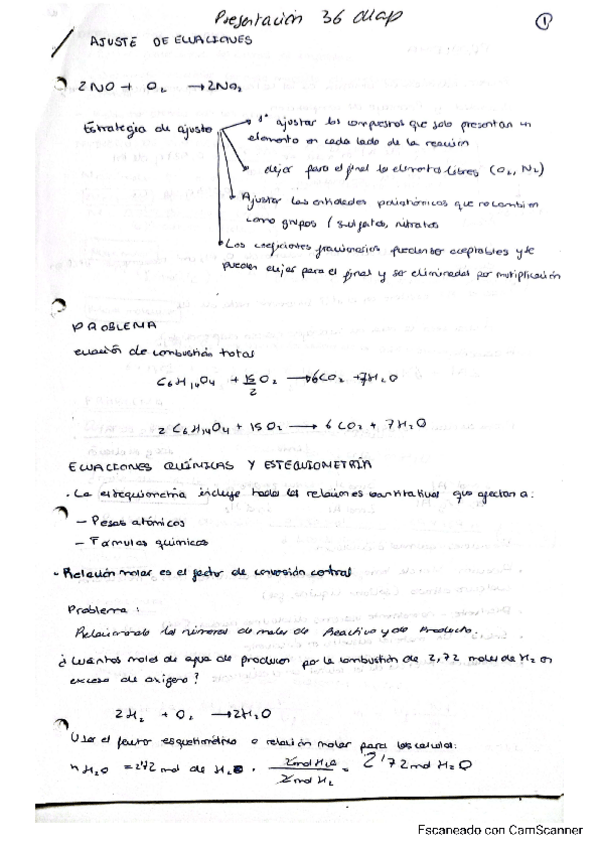 Presentación 36 diap
1
AJUSTE DE ECUACIONES
2NO + O₂ → 2NO₂
Estrategia de ajuste
1º ajustar los compuestos que solo presentan un
elemento en cada lado de la reacción
dejar para el final los elementos libres (O₂, N₂)
Ajustar las entidades poliatómicas que no cambien
como grupos (sulfatos, nitratos
Los coeficientes fraccionarios pueden ser aceptables y se
pueden dejar para el final y ser eliminados por multiplicación
PROBLEMA
ecuación de combustión total
C₆H₁₄O₄ + 15/2 O₂ → 6CO₂ + 7H₂O
2 C₆H₁₄O₄ + 15O₂ → 6 CO₂ + 7H₂O
ECUACIONES QUÍMICAS Y ESTEQUIOMETRÍA
· La estequiometria incluye todas las relaciones cuantitativas que afectan a:
- Pesos atómicos
- Fórmulas químicas
- Relación molar es el factor de conversión central
Problema:
Relacionando los números de moles de Reactivo y de Producto.
¿Cuántos moles de agua de producen por la combustión de 2,72 moles de H₂ en
exceso de oxígeno?
2H₂ + O₂ → 2H₂O
Usar el factor esquiométrico o relación molar para los cálculos:
n H₂O = 2'72 mol de H₂ · 2mol H₂O / 2mol H₂ = 2'72 mol H₂O
Escaneado con CamScanner